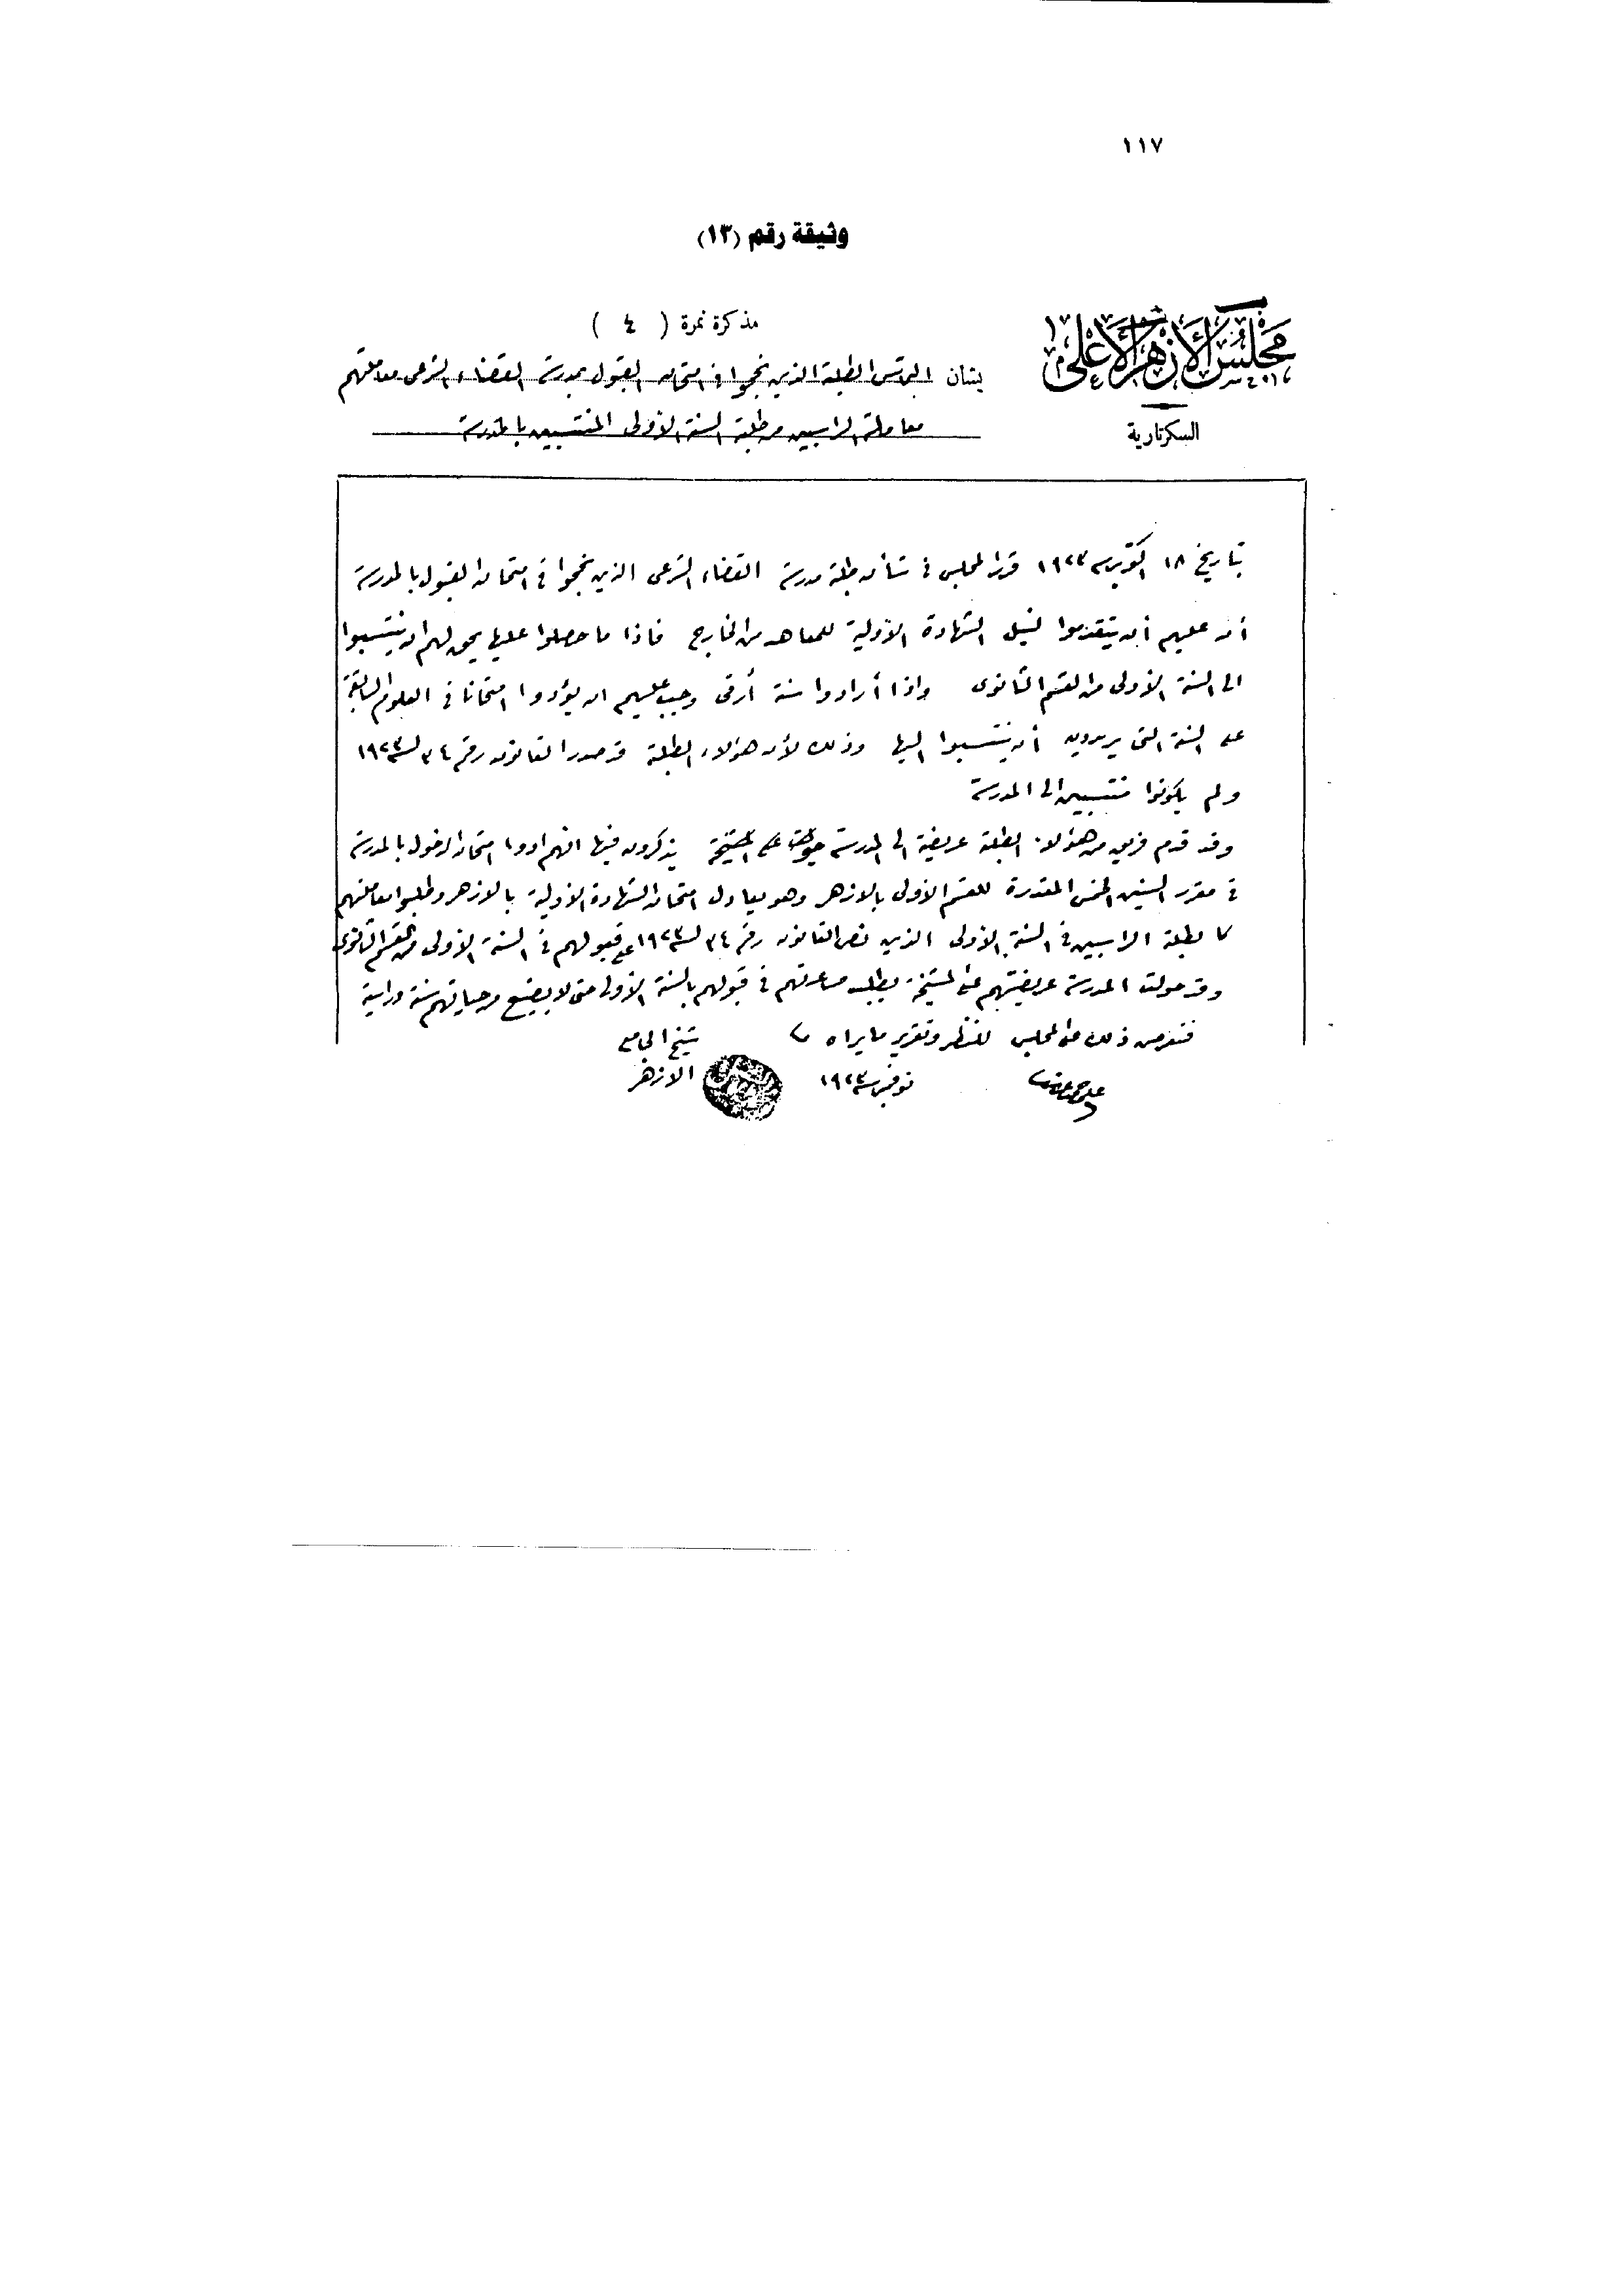 ١١٧
وثيقة رقم (١٣)
مجلس الأزهر الأعلى
السكرتارية
مذكرة نمرة ( ٤ )
بشأن التماس الطلبة الذين نجحوا فى امتحان القبول بمدرسة القضاء الشرعى معاملتهم
معاملة الراسبين من طلبة السنة الأولى المنتسبين بالمدرسة
بتاريخ ١٨ اكتوبر سنة ١٩٢٣ قرر المجلس فى شأن طلبة مدرسة القضاء الشرعى الذين نجحوا فى امتحان القبول بالمدرسة
أن عليهم أن يتقدموا لنيل الشهادة الأولية للمعاهد من الخارج فاذا ما حصلوا عليها يحق لهم ان ينتسبوا
الى السنة الأولى من القسم الثانوى واذا أرادوا سنة أرقى وجب عليهم ان يؤدوا امتحانا فى العلوم السابقة
على السنة التى يريدون أن ينتسبوا اليها وذلك لأن هؤلاء الطلبة قد صدر القانون رقم ٣٤ لسنة ١٩٢٣
ولم يكونوا منتسبين الى المدرسة
وقد قدم فريق من هؤلاء الطلبة عريضة الى المدرسة حولت على المشيخة يذكرون فيها انهم ادوا امتحان الدخول بالمدرسة
فى مقرر السنين الخمس المقدرة للقسم الأولى بالازهر وهو يعادل امتحان الشهادة الأولية بالازهر وطلبوا معاملتهم
كالطلبة الراسبين فى السنة الأولى الذين نص القانون رقم ٣٤ لسنة ١٩٢٣ على قبولهم فى السنة الأولى من القسم الثانوى
وقد حولت المدرسة عريضتهم على المشيخة بطلب مساعدتهم فى قبولهم بالسنة الأولى حتى لا يضيع من حياتهم سنة دراسية
فنعرض ذلك على المجلس للنظر وتقرير ما يراه
شيخ الجامع
الازهر
نوفمبر سنة ١٩٢٣